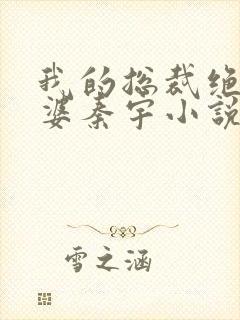 我的总裁绝
婆秦宇小説
雪之涵